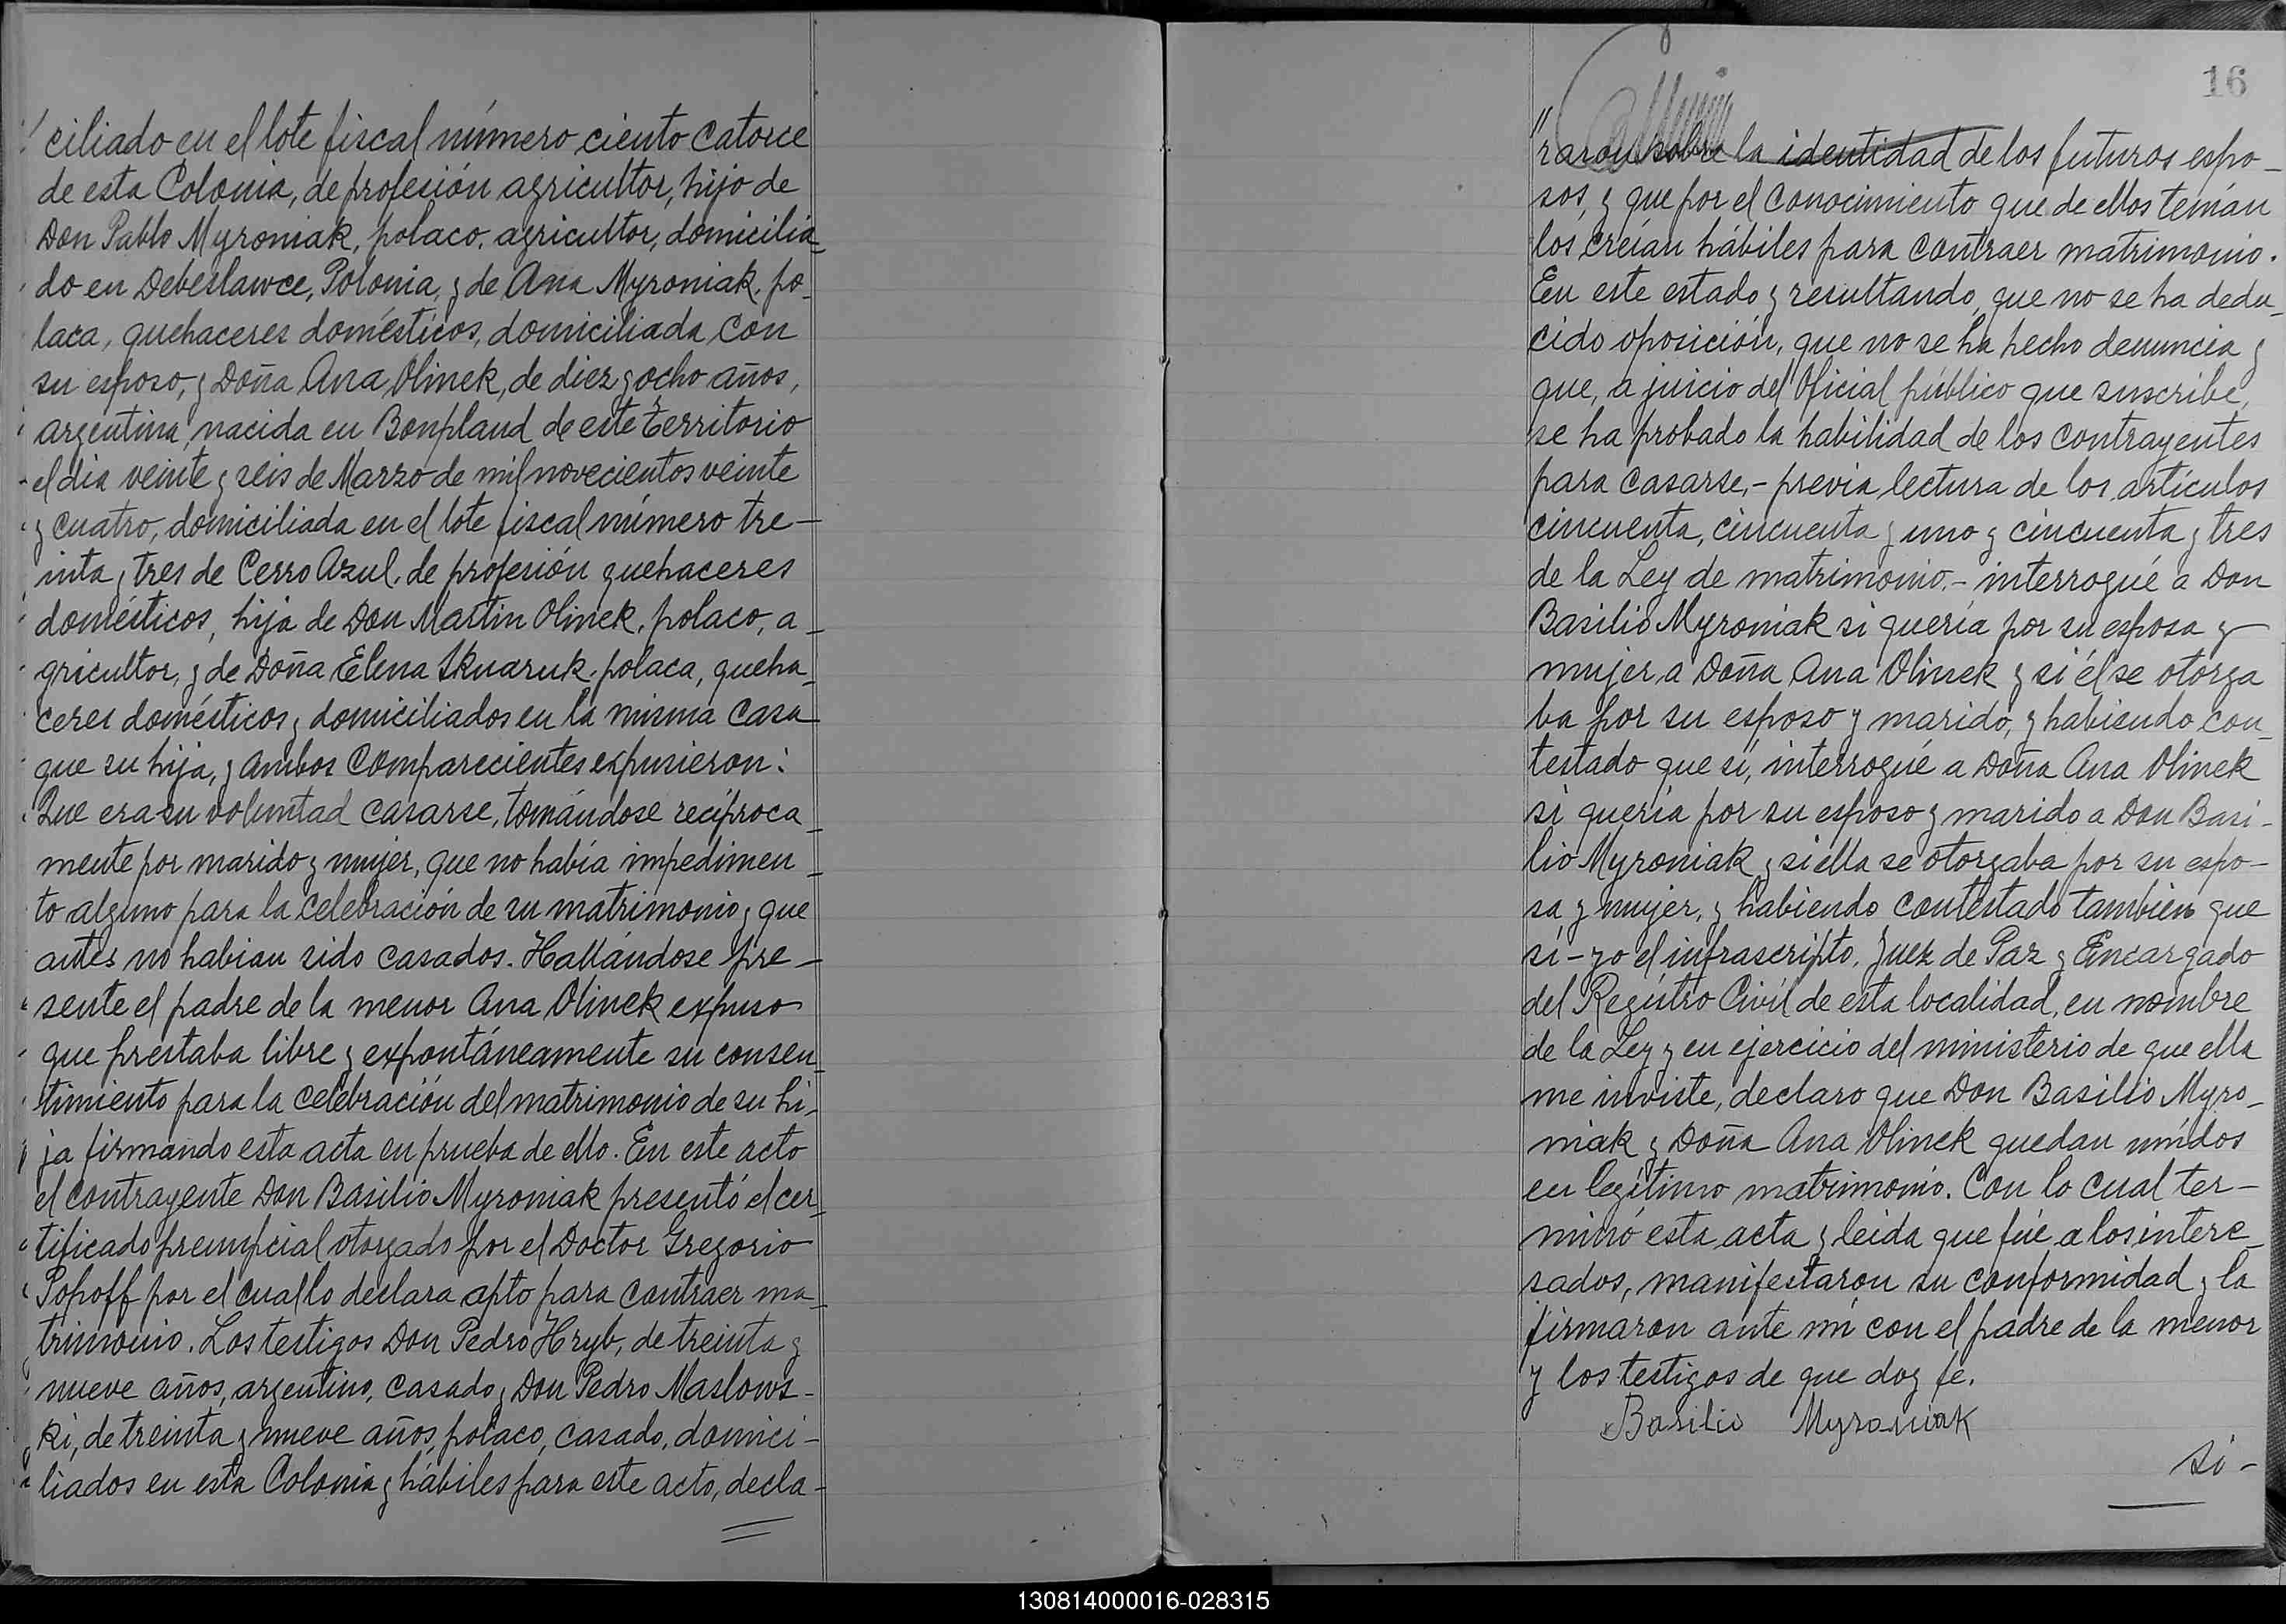 ciliado en el lote fiscal número ciento catorce
de esta Colonia, de profesión agricultor, hijo de
Don Pablo Myroniak, polaco, agricultor, domicilia_
do en Debeslawce, Polonia, y de Ana Myroniak, po_
laca, quehaceres domésticos, domiciliada con
su esposo, y Doña Ana Olinek, de diez y ocho años,
argentina, nacida en Bonpland de este Territorio
el día veinte y seis de Marzo de mil novecientos veinte
y cuatro, domiciliada en el lote fiscal número tre-
inta y tres de Cerro Azul, de profesión quehaceres
domésticos, hija de Don Martin Olinek, polaco, a_
gricultor, y de Doña Elena Skuaruk, polaca, queha_
ceres domésticos, domiciliados en la misma casa
que su hija, y ambos comparecientes expusieron:
Que era su voluntad casarse, tomándose reciproca_
mente por marido y mujer, que no había impedimen_
to alguno para la celebración de su matrimonio y que
antes no habian sido casados. Hallándose pre-
sente el padre de la menor Ana Olinek expuso
que prestaba libre y expontáneamente su consen_
timiento para la celebración del matrimonio de su hi-
ja firmando esta acta en prueba de ello. En este acto
el contrayente Don Basilio Myroniak presentó el cer_
tificado prenupcial otorgado por el Doctor Gregorio
Popoff por el cual lo declara apto para contraer ma_
trimonio. Los testigos Don Pedro Hryb, de treinta y
nueve años, argentino, casado y Don Pedro Maslows-
ki, de treinta y nueve años, polaco, casado, domici-
liados en esta Colonia y hábiles para este acto, decla-
16
" raron sobre la identidad de los futuros espo-
sos, y que por el conocimiento que de ellos tenían
los creían hábiles para contraer matrimonio.
En este estado y resultando, que no se ha dedu_
cido oposición, que no se ha hecho denuncia y
que, a juicio del Oficial público que suscribe,
se ha probado la habilidad de los contrayentes
para casarse,- previa lectura de los artículos
cincuenta, cincuenta y uno y cincuenta y tres
de la Ley de matrimonio,- interrogué a Don
Basilio Myroniak si quería por su esposa y
mujer a Doña Ana Olinek y si él se otorga
ba por su esposo y marido, y habiendo con_
testado que sí, interrogué a Doña Ana Olinek
si quería por su esposo y marido a Don Basi-
lio Myroniak y si ella se otorgaba por su espo-
sa y mujer, y habiendo contestado también que
sí - yo el infrascripto, Juez de Paz y Encargado
del Registro Civil de esta localidad, en nombre
de la Ley y en ejercicio del ministerio de que ella
me inviste, declaro que Don Basilio Myro_
niak y Doña Ana Olinek quedan unidos
en legítimo matrimonio. Con lo cual ter-
minó esta acta y leida que fué a los intere_
sados, manifestaron su conformidad y la
firmaron ante mí con el padre de la menor
y los testigos de que doy fé.
Basilio Myroniak
si-
130814000016-028315